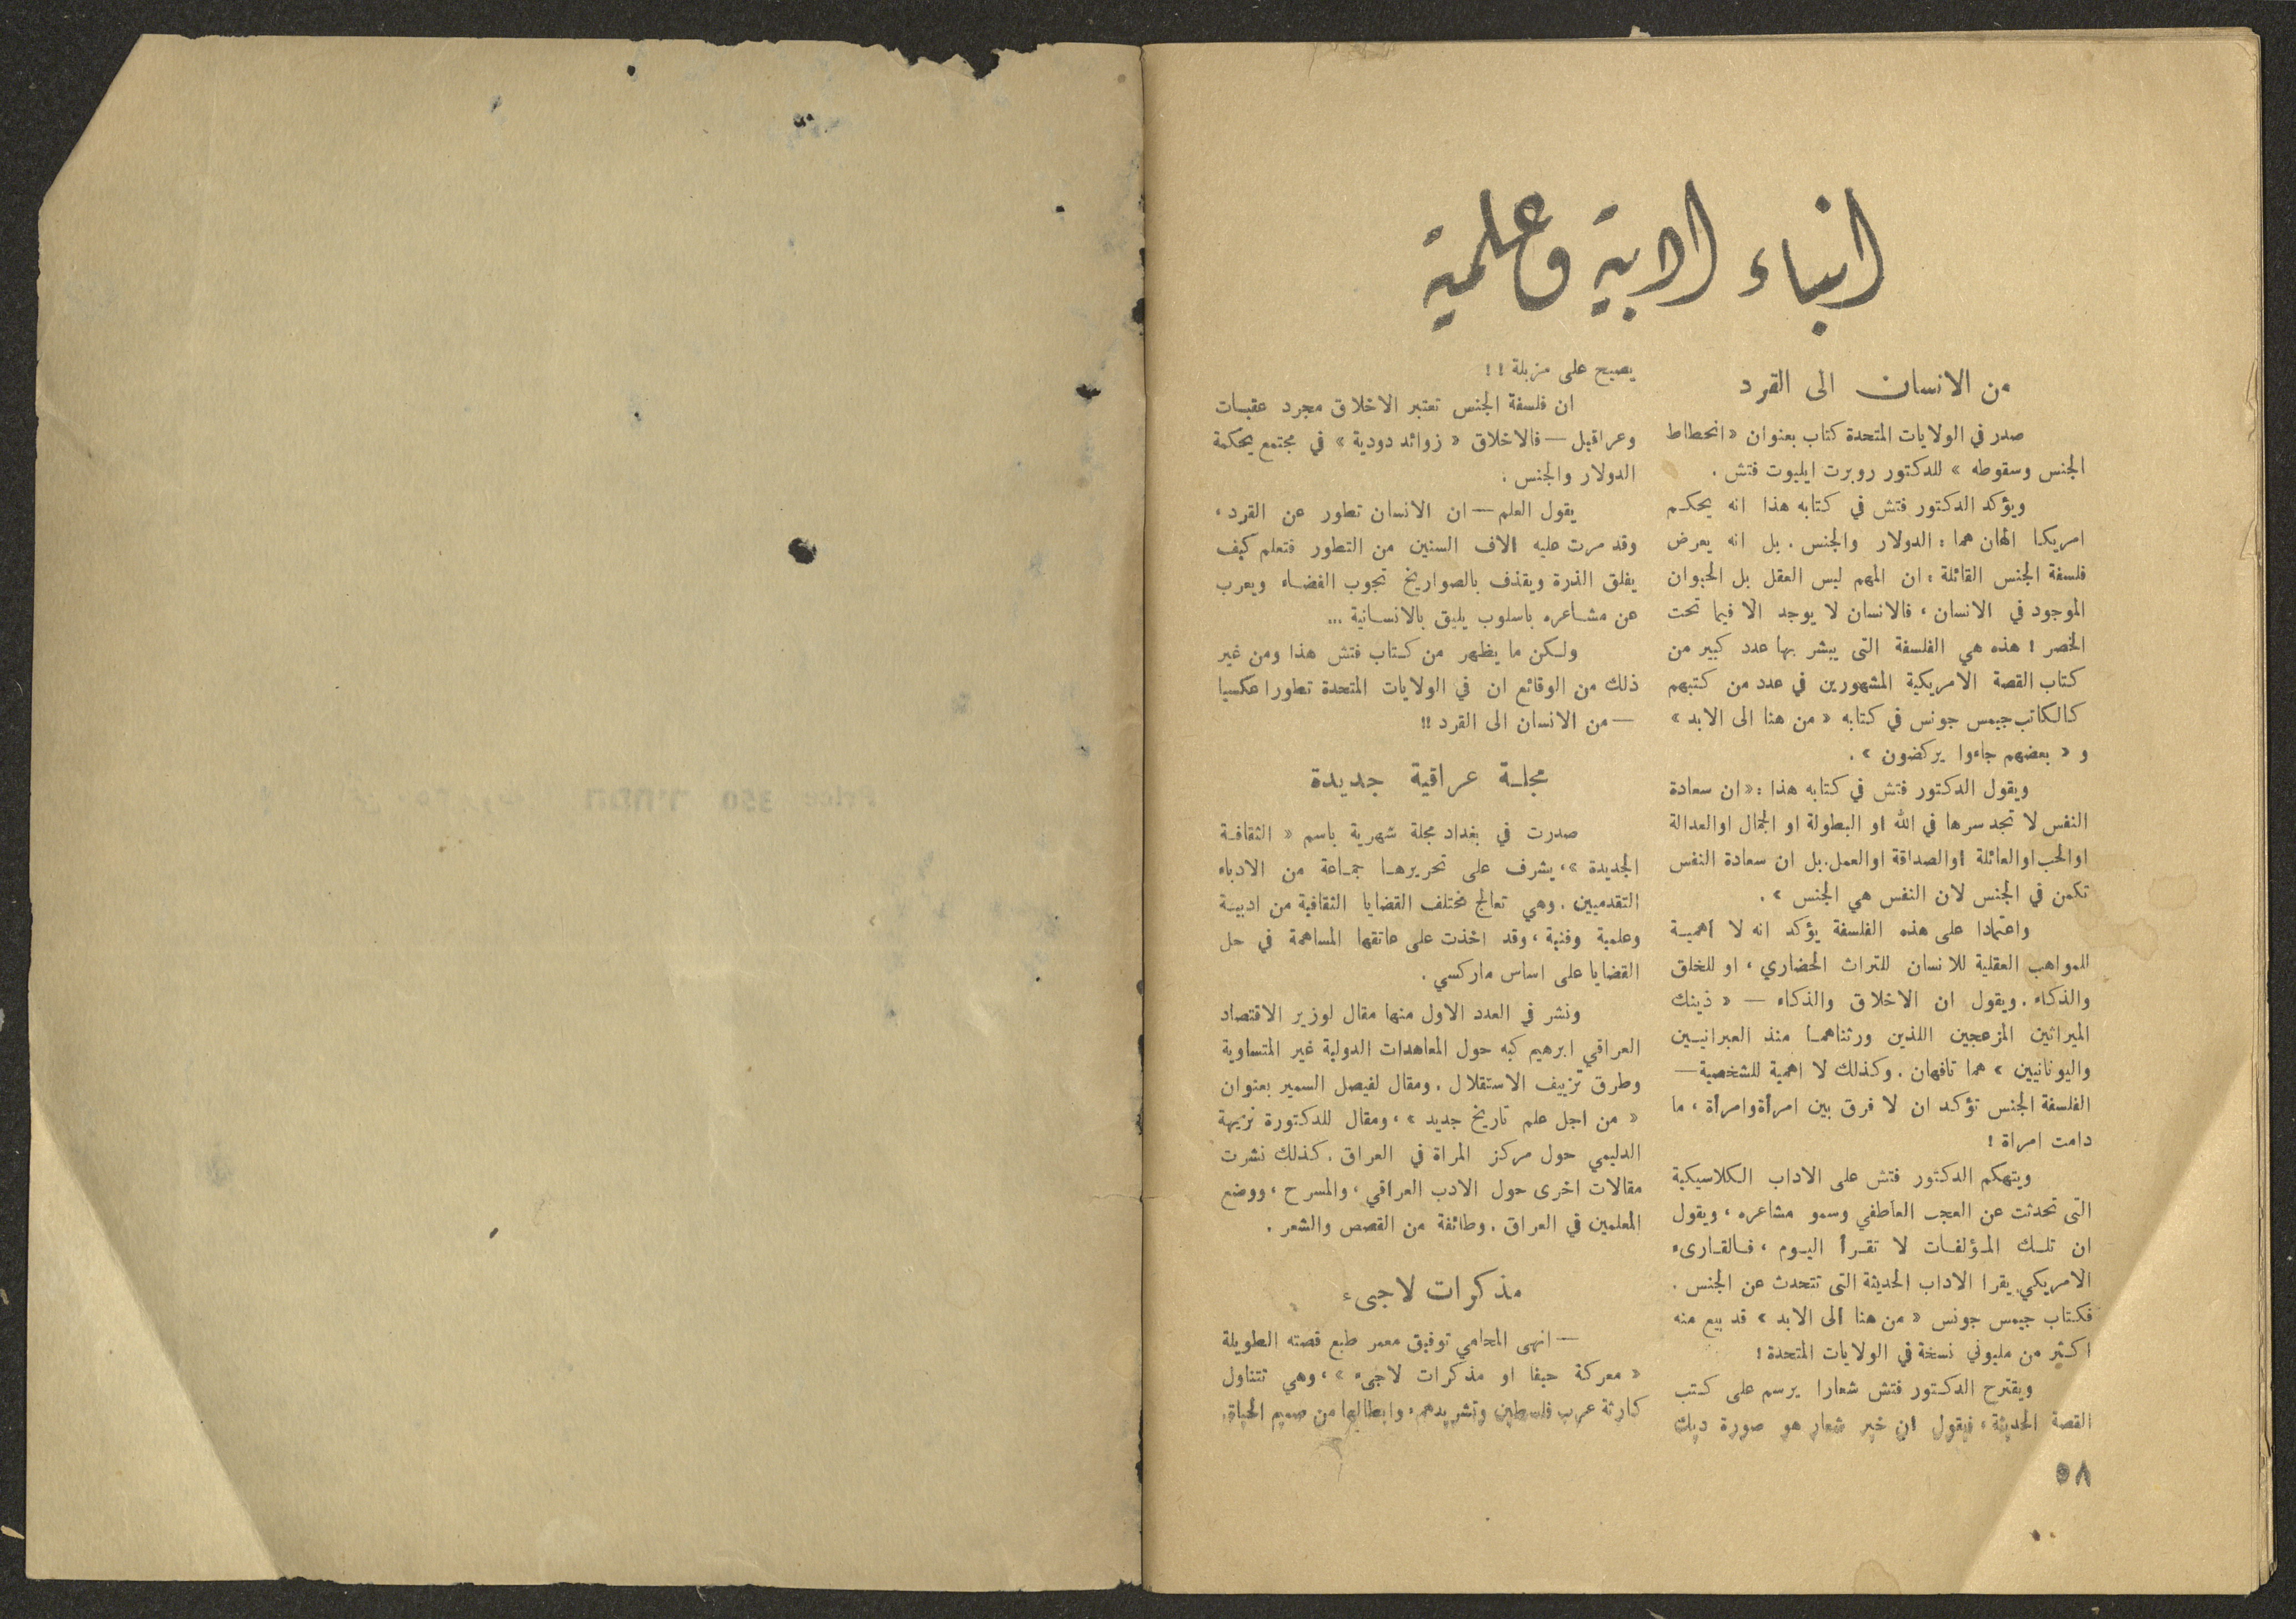 انباء ادبية وعلمية
من الانسان الى القرد
صدر في الولايات المتحدة كتاب بعنوان « انحطاط
الجنس وسقوطه » للدكتور روبرت ايليوت فتش .
ويؤكد الدكتور فتش في كتابه هذا انه يحكم
امريكا الهان هما : الدولار والجنس . بل انه يعرض
فلسفة الجنس القائلة : ان المهم ليس العقل بل الحيوان
الموجود في الانسان ، فالانسان لا يوجد الا فيما تحت
الخصر ! هذه هي الفلسفة التى يبشر بها عدد كبير من
كتاب القصة الامريكية المشهورين في عدد من كتبهم
كالكاتب جيمس جونس في كتابه « من هنا الى الابد »
و « بعضهم جاءوا يركضون » .
ويقول الدكتور فتش في كتابه هذا : « ان سعادة
النفس لا تجد سرها في الله او البطولة او الجمال او العدالة
او الحب او العائلة او الصداقة او العمل . بل ان سعادة النفس
تكمن في الجنس لان النفس هي الجنس » .
واعتمادا على هذه الفلسفة يؤكد انه لا أهمية
للمواهب العقلية للانسان للتراث الحضاري ، او للخلق
والذكاء . ويقول ان الاخلاق والذكاء — « ذينك
الميراثين المزعجين اللذين ورثناهما منذ العبرانيين
واليونانيين » هما تافهان . وكذلك لا اهمية للشخصية —
الفلسفة الجنس تؤكد ان لا فرق بين امرأة وامرأة ، ما
دامت امراة !
ويتهكم الدكتور فتش على الاداب الكلاسيكية
التى تحدثت عن العجب العاطفي وسمو مشاعره ، ويقول
ان تلك المؤلفات لا تقرأ اليوم ، فالقارىء
الامريكي يقرا الاداب الحديثة التى تتحدث عن الجنس .
فكتاب جيمس جونس « من هنا الى الابد » قد بيع منه
اكثر من مليوني نسخة في الولايات المتحدة !
ويقترح الدكتور فتش شعارا يرسم على كتب
القصة الحديثة ، فيقول ان خير شعار هو صورة ديك
يصيح على مزبلة ! !
ان فلسفة الجنس تعتبر الاخلاق مجرد عقبات
وعراقيل — فالاخلاق « زوائد دودية » في مجتمع يحكمة
الدولار والجنس .
يقول العلم — ان الانسان تطور عن القرد ،
وقد مرت عليه الاف السنين من التطور فتعلم كيف
يفلق الذرة ويقذف بالصواريخ تجوب الفضاء ويعرب
عن مشاعره باسلوب يليق بالانسانية ...
ولكن ما يظهر من كتاب فتش هذا ومن غير
ذلك من الوقائع ان في الولايات المتحدة تطورا عكسيا
— من الانسان الى القرد !!
مجلة عراقية جديدة
صدرت في بغداد مجلة شهرية باسم « الثقافة
الجديدة » ، يشرف على تحريرها جماعة من الادباء
التقدميين . وهي تعالج مختلف القضايا الثقافية من ادبية
وعلمية وفنية ، وقد اخذت على عاتقها المساهمة في حل
القضايا على اساس ماركسي .
ونشر في العدد الاول منها مقال لوزير الاقتصاد
العراقي ابرهيم كبه حول المعاهدات الدولية غير المتساوية
وطرق تزييف الاستقلال . ومقال لفيصل السمير بعنوان
« من اجل علم تاريخ جديد » ، ومقال للدكتورة نزيهة
الدليمي حول مركز المراة في العراق . كذلك نشرت
مقالات اخرى حول الادب العراقي ، والمسرح ، ووضع
المعلمين في العراق . وطائفة من القصص والشعر .
مذكرات لاجىء
— انهى المحامي توفيق معمر طبع قصته الطويلة
« معركة حيفا او مذكرات لاجىء » ، وهي تتناول
كارثة عرب فلسطين وتشريدهم ، وابطالها من صميم الحياة .
٥٨